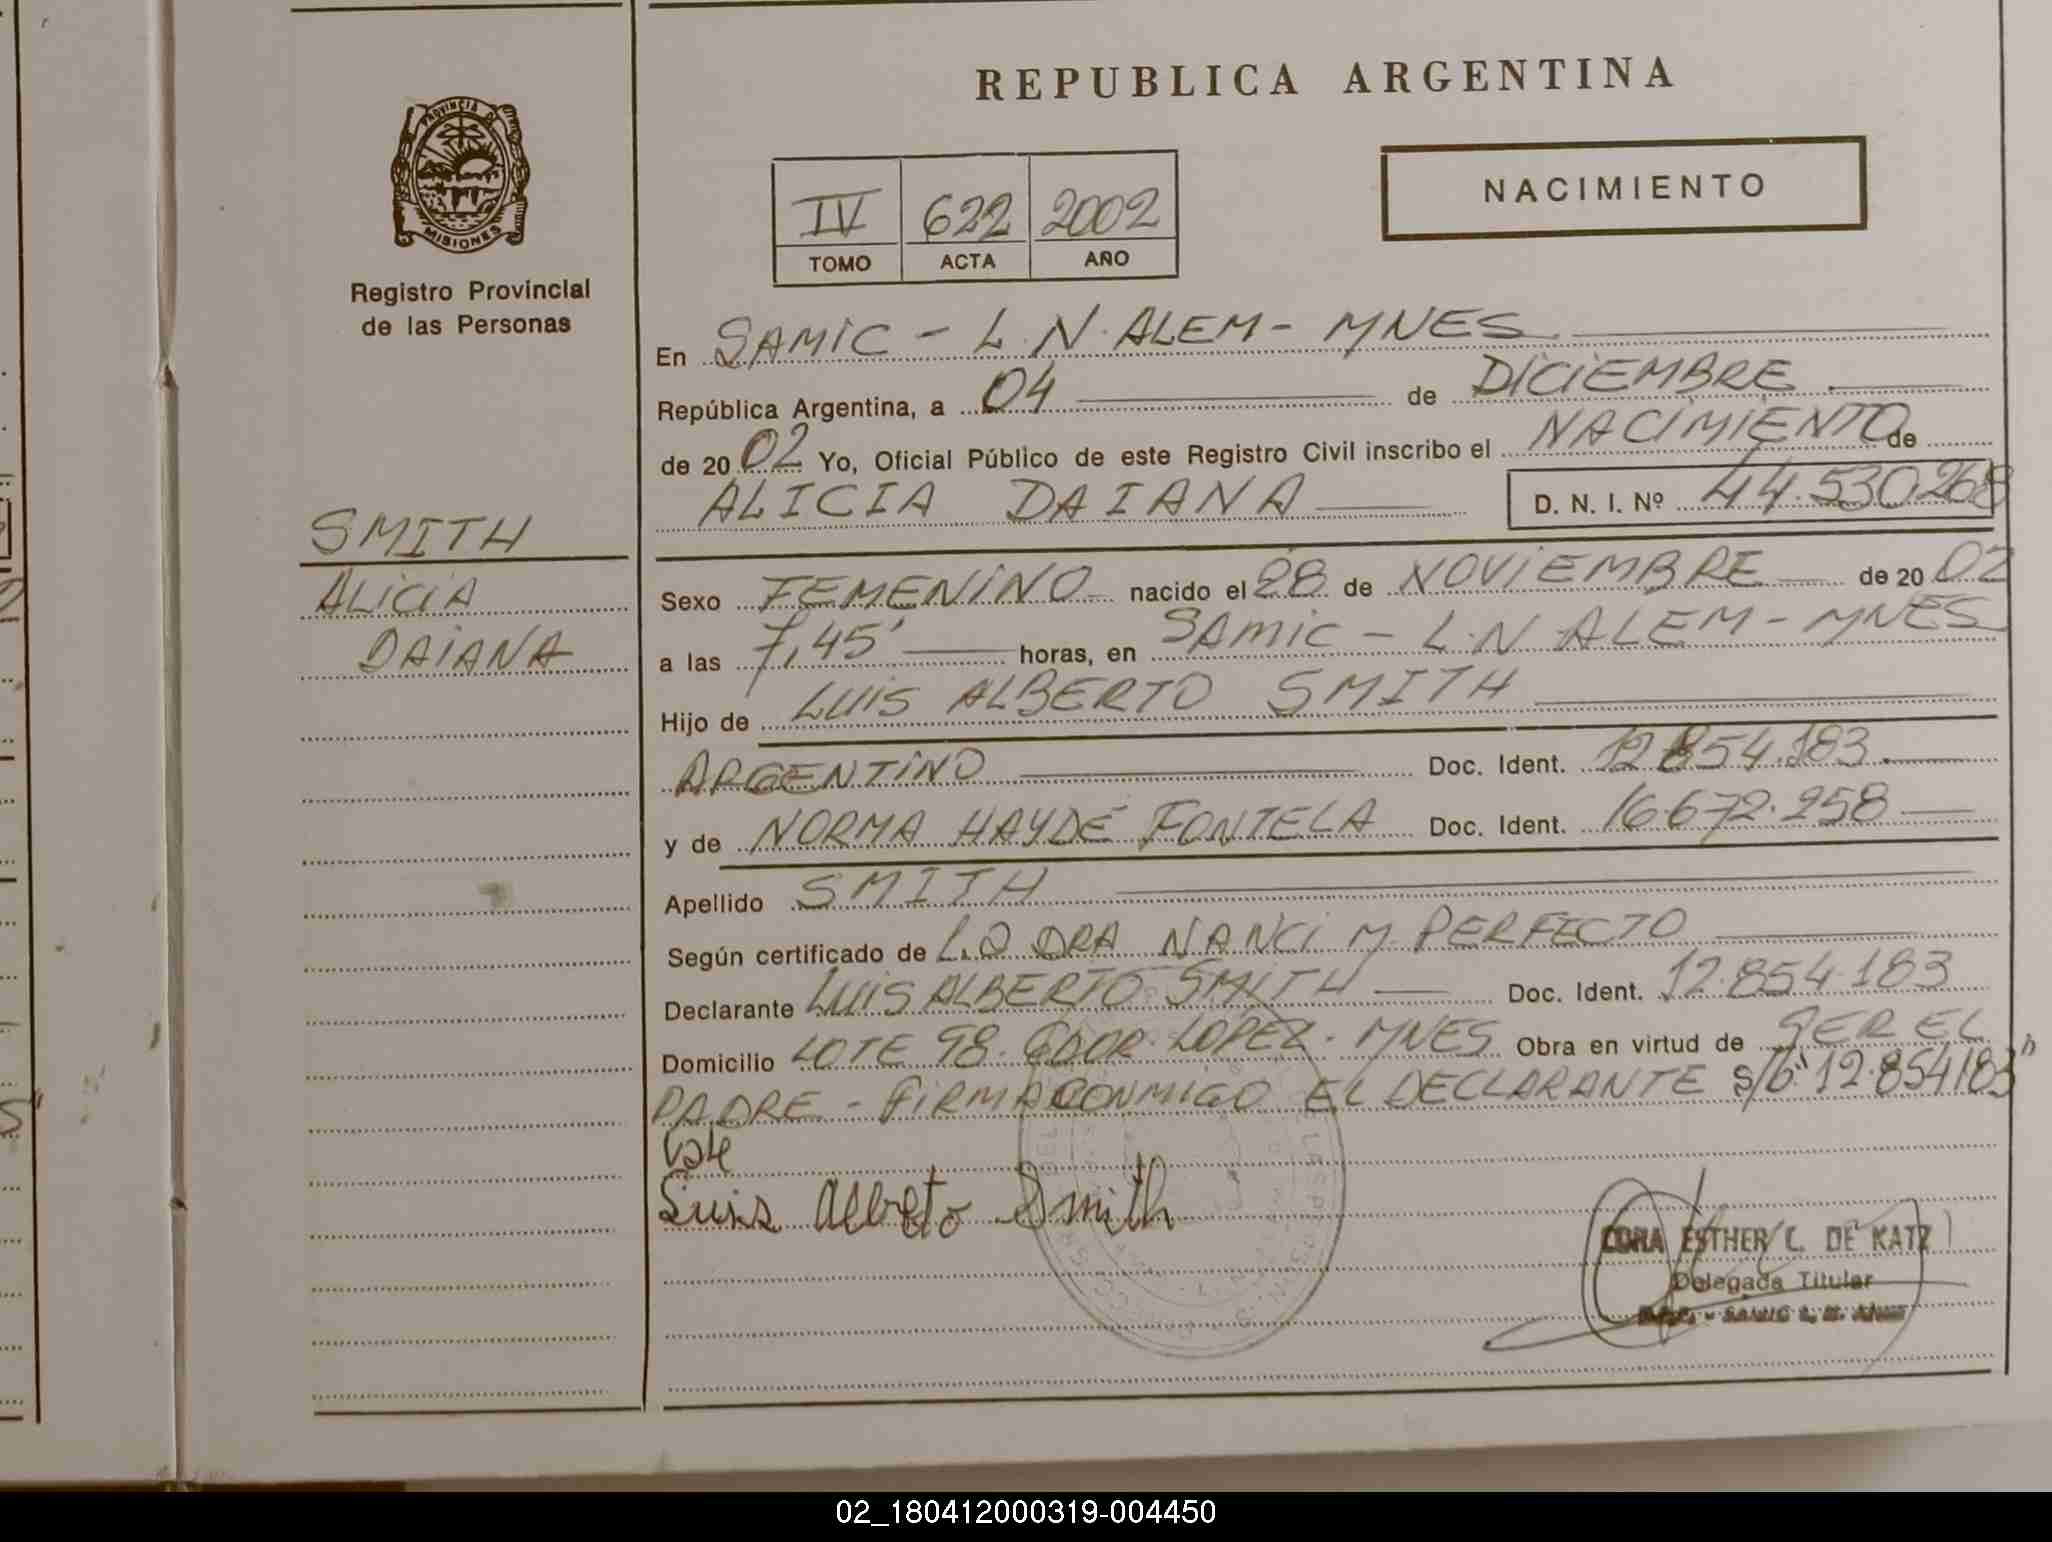 REPUBLICA ARGENTINA
PROVINCIA DE
MISIONES
Registro Provincial
de las Personas
IV 622 2002
TOMO ACTA AÑO
NACIMIENTO
SMITH
ALICIA
DAIANA
En SAMIC - L.N. ALEM - MNES
República Argentina, a 04 de DICIEMBRE
de 20 02 Yo, Oficial Público de este Registro Civil inscribo el NACIMIENTO de
ALICIA DAIANA D. N. I. Nº 44.530268
Sexo FEMENINO nacido el 28 de NOVIEMBRE de 20 02
a las 7,45' horas, en SAMIC - L.N. ALEM - MNES
Hijo de LUIS ALBERTO SMITH
ARGENTINO Doc. Ident. 12854.183
y de NORMA HAYDÉ FONTELA Doc. Ident. 16.672.258
Apellido SMITH
Según certificado de LA DRA NANCI M. PERFECTO
Declarante LUIS ALBERTO SMITH Doc. Ident. 12.854.183
Domicilio LOTE 98. GDOR. LÓPEZ. MNES Obra en virtud de SER EL
PADRE - FIRMA CONMIGO EL DECLARANTE S/b: "12.854183"
Vale
Luis Albreto Smith
CORA ESTHER C. DE KATZ
Delegada Titular
02_180412000319-004450